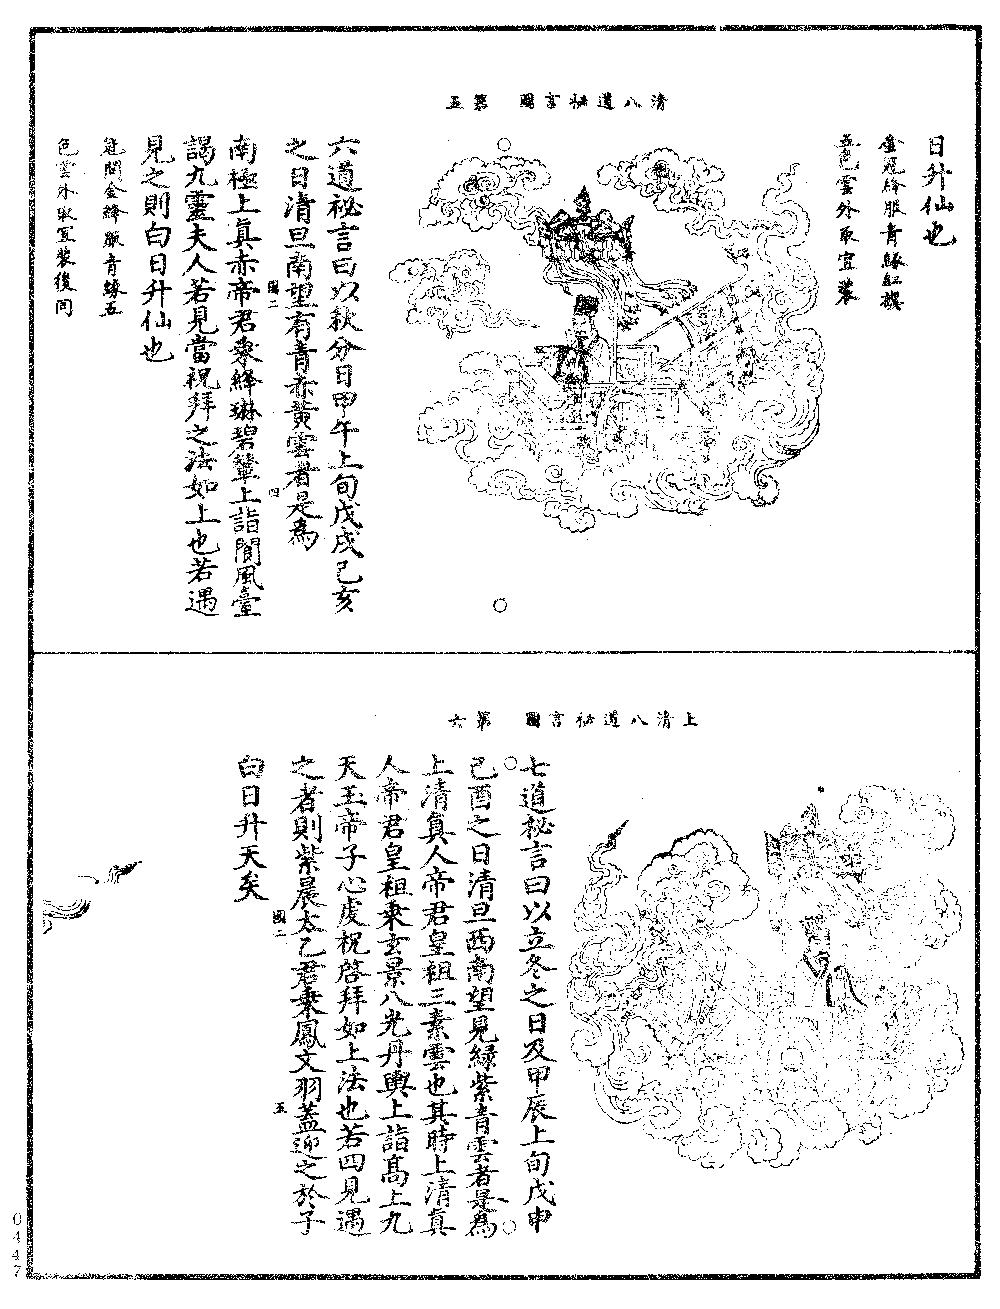 日升仙也
金冠絳服青緣紅襈
五色雲外取宜裝
清八道秘言圖　第五
六道秘言曰以秋分日甲午上旬戊戌己亥
之日清旦南望有青赤黄雲者是爲
圖二　四
南極上真赤帝君乘絳琳碧輦上詣閬風臺
謁九靈夫人若見當祝拜之法如上也若遇
見之則白日升仙也
冠間金絳服青緣五
色雲外取宜裝後同
上清八道秘言圖　第六
七道秘言曰以立冬之日及甲辰上旬戊申
己酉之日清旦西南望見緑紫青雲者是爲
上清真人帝君皇祖三素雲也其時上清真
人帝君皇祖乘玄景八光丹輿上詣高上九
天玉帝子心虔祝啓拜如上法也若四見遇
之者則紫晨太乙君乘鳳文羽蓋迎之於子
圖二　五
白日升天矣
0447